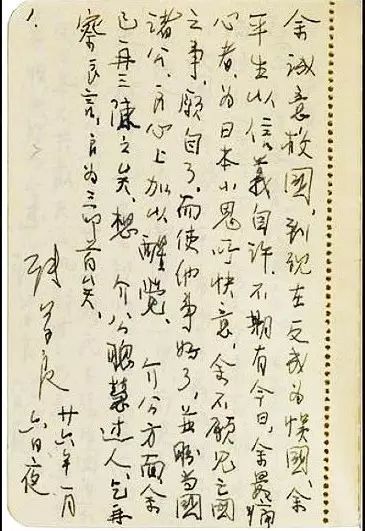 余誠意救國，到現在反成為悮國，余
平生以信義自許，不期有今日，余最痛
心者，为日本小鬼呼快意，余不願見亡國
之事，願自了，而使他事好了，並盼當國
諸公，良心上加以醒覺， 介公方面余
已再三陳之矣，想 介公聰慧過人，乞再
察良言，良为三叩首矣，
張學良
廿六年一月
六日夜